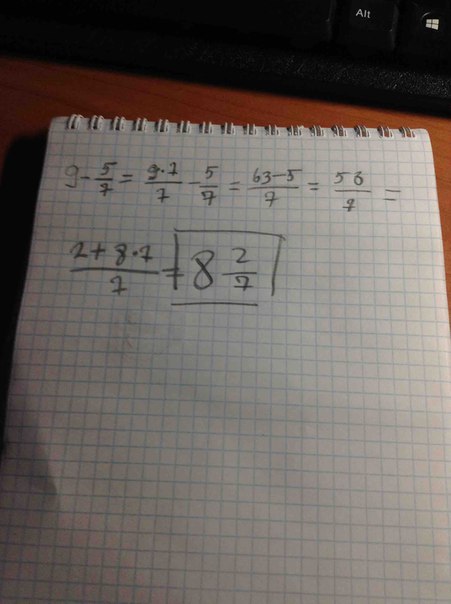 Alt
9 - 5/7 = 9·7/7 - 5/7 = 63-5/7 = 58/7 =
2+8·7/7 = 8 2/7